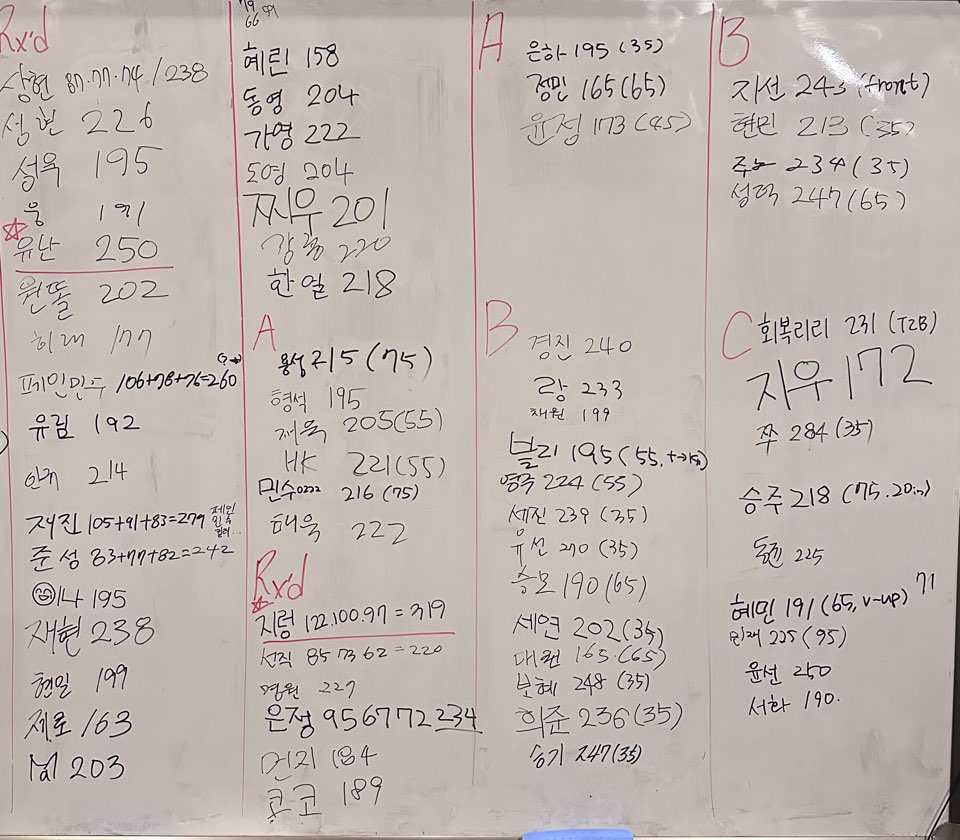 Rx'd
상현 87.77.74 / 238
성현 226
성욱 195
웅 191
유난 250
원똘 202
희래 177
페인민수 106+78+76=260
유림 192
214
재진 105+91+83=279
준성 83+77+82=242
14 195
재현 238
현일 199
제로 163
203
79
66
혜린 158
동영 204
가영 222
도영 204
찌우 201
220
한열 218
A
용성 215 (75)
형석 195
제욱 205(55)
HK 221(55)
민수0222 216 (75)
태욱 222
Rx'd
지렁 122.100.97 = 319
선직 85 73 62 = 220
명원 227
은정 95 67 72 234
먼지 184
코코 189
A
은하 195 (35)
정민 165(65)
윤정 173 (45)
B
경진 240
랑 233
재원 199
블리 195 (55,
영주 224 (55)
세진 239 (35)
유선 270 (35)
승모 190 (65)
세연 202 (35)
대원 165 (65)
보혜 248 (35)
희준 236 (35)
승기 247(35)
B
지선 243 (front)
현민 213 (35)
234 (35)
성덕 247(65)
C
회복리리 231 (T2B)
지우 172
쭈 284 (35)
승주 218 (75. 20in)
225
혜민 191 (65, v-up) 71
민재 225 (95)
윤선 250
서하 190.